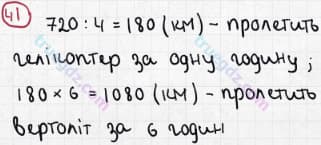 41 720 : 4 = 180 (км) – пролетить
гелікоптер за одну годину;
180 × 6 = 1080 (км) – пролетить
вертоліт за 6 годин